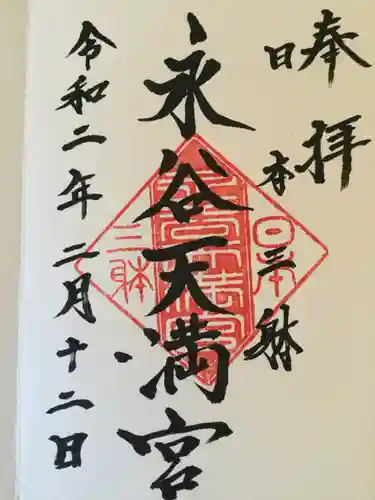 奉拝
日本三躰
永谷天満宮
令和二年二月十二日
日本
三躰